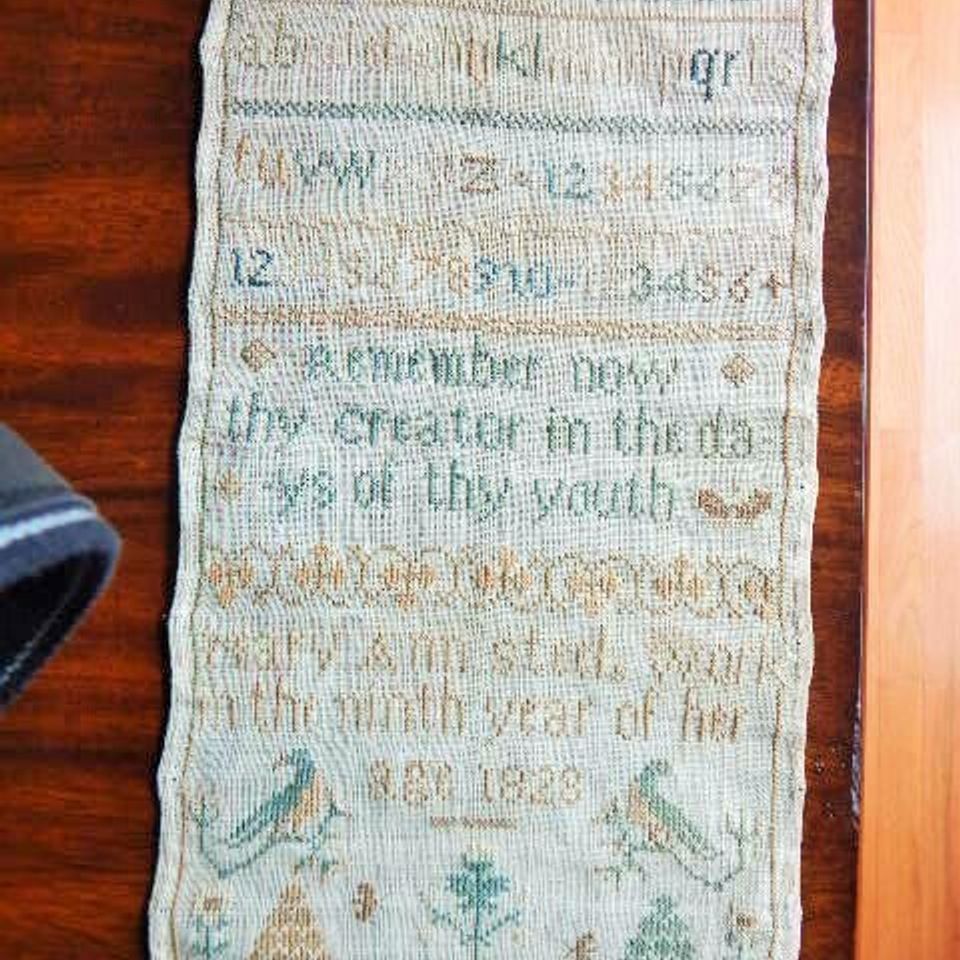 a b c d e f g h i j k l m n o p q r s
t u v w x y z - 1 2 3 4 5 6 7 8
1 2 3 4 5 6 7 8 9 10 - 1 2 3 4 5 6 +
Remember now
thy creator in the da-
-ys of thy youth
Mary Ann stud. work
in the ninth year of her
age 1823